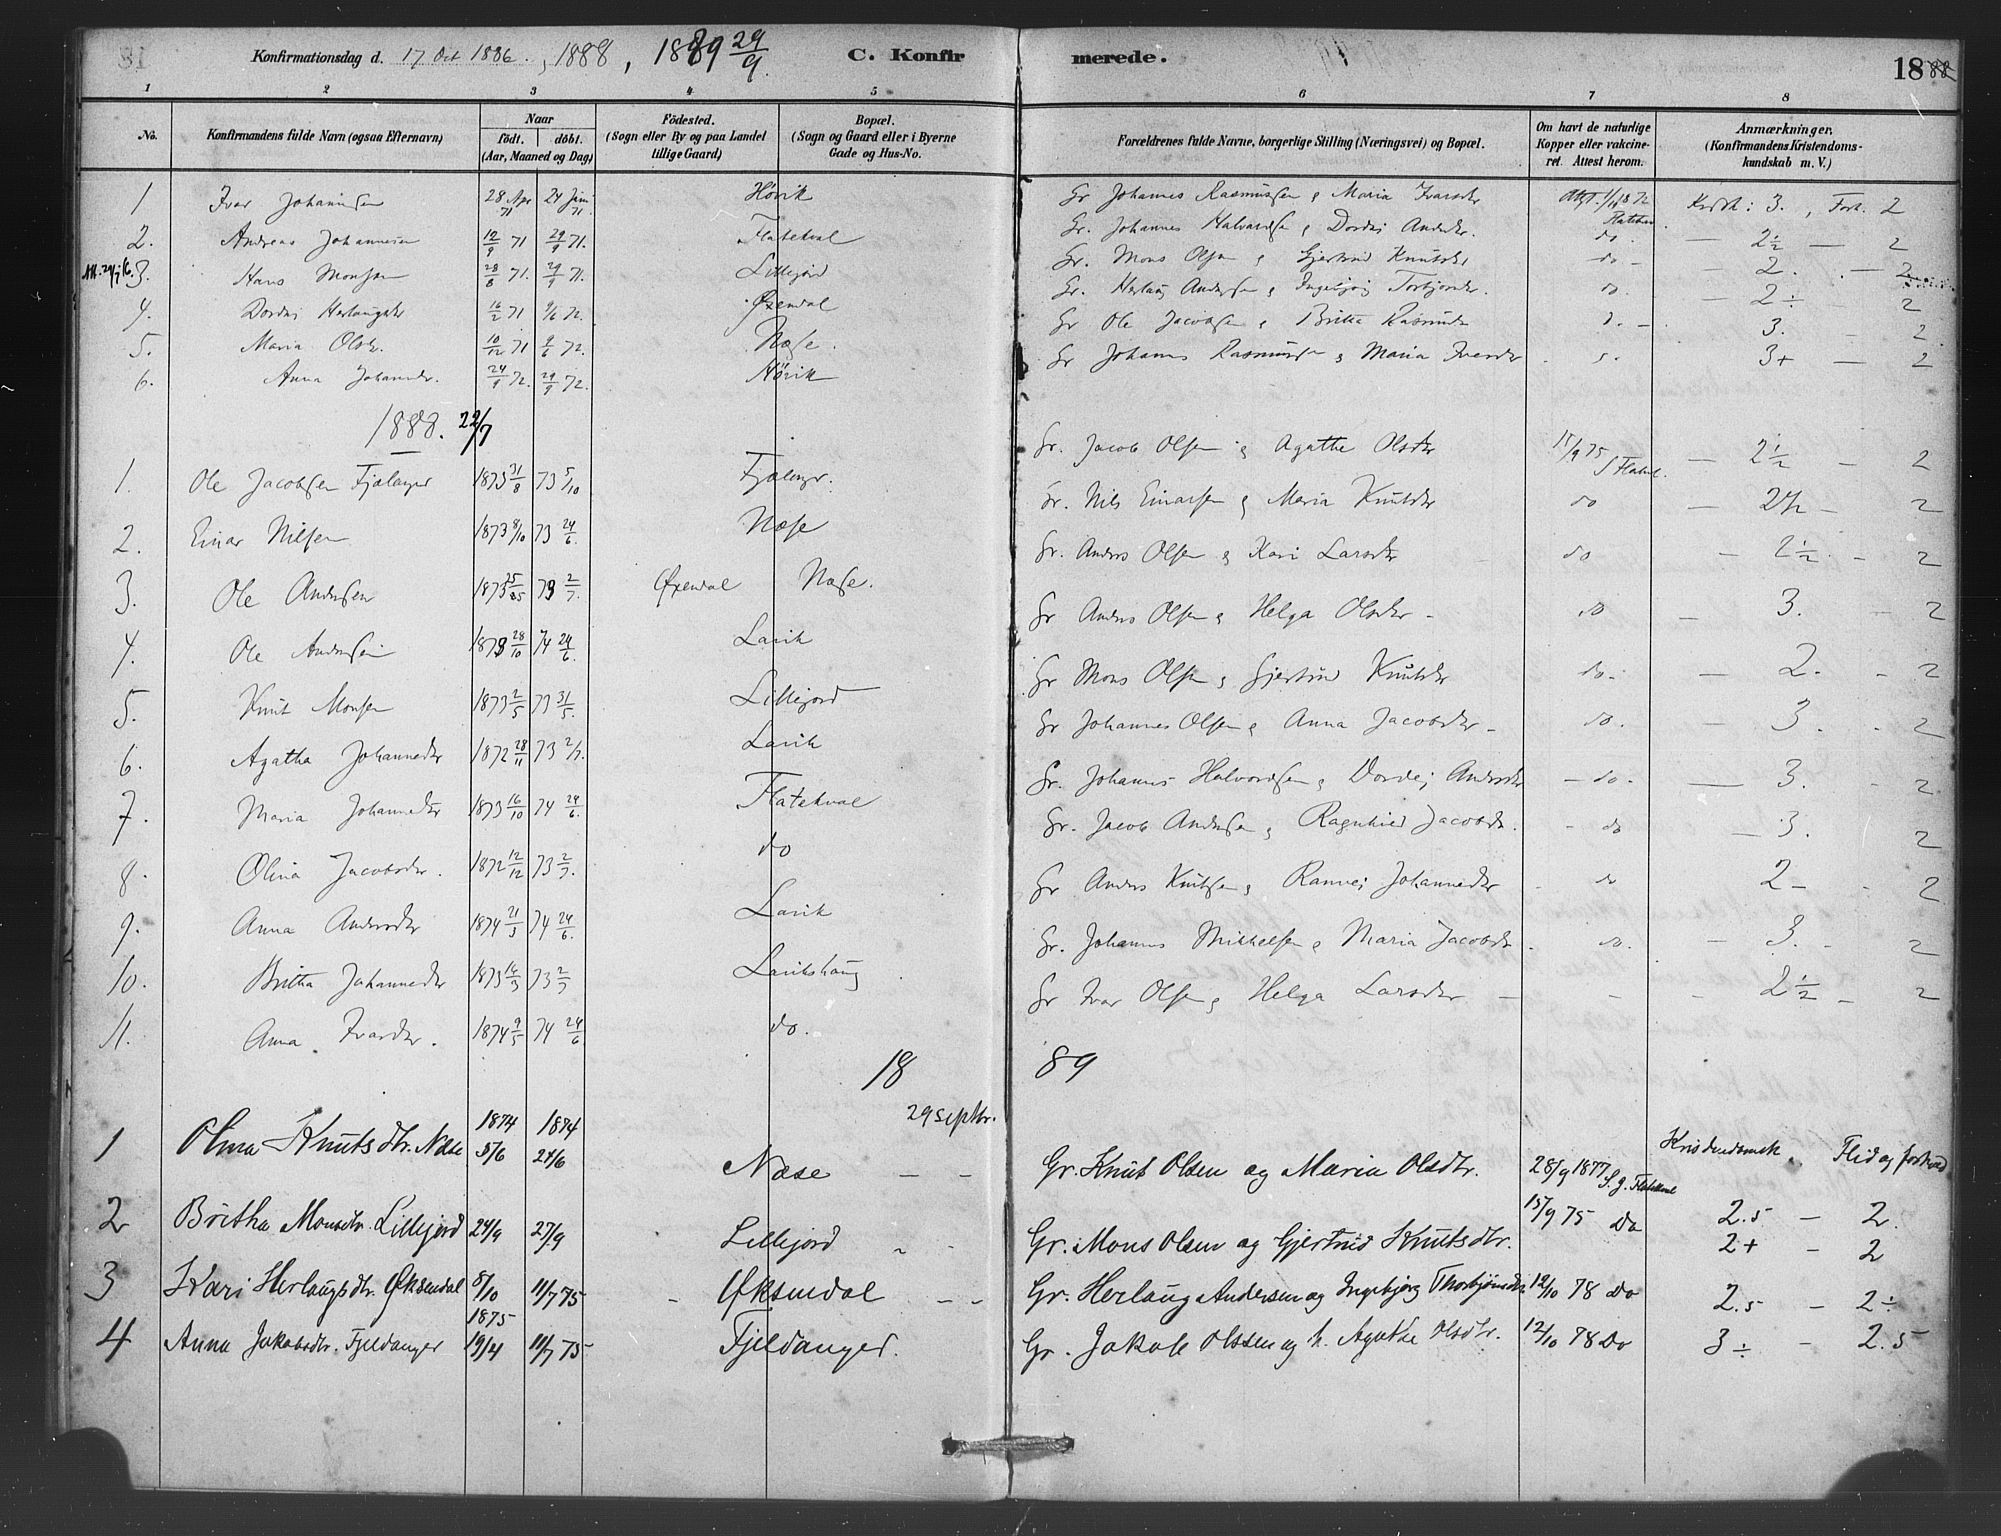 Konfirmationsdag d. 17 Oct 1886, 1888, 1889 29/9. C. Konfirmerede. 1888
1 2 3 4 5 6 7 8
No. Konfirmandens fulde Navn (ogsaa Efternavn) Naar født. døbt. (Aar, Maaned og Dag) Fødested. (Sogn eller By og paa Landet tillige Gaard) Bopæl. (Sogn og Gaard eller i Byerne Gade og Hus-No. Forældrenes fulde Navne, borgerlige Stilling (Næringsvei) og Bopæl. Om havt de naturlige Kopper eller vakcineret. Attest herom. Anmærkninger. (Konfirmandens Kristendomskundskab m. V.)
1 Ivar Johannesen 28 Apr 71 24 Juni 71. Hövik Gr Johannes Rasmussen & Maria Ivarsdtr 72 3., 2
2. Andreas Johannesen 12/9 71 29/9 71. Flatekval Gr. Johannes Halvardsen & Dordei Andersdtr. do. — 2½ — 2
3. Hans Monsen 28/8 71. 29/9 71. Lillejord Gr. Mons Olsen & Gjertrud Knutsdtr do - — 2. — 2
4. Dordei Herlaugsdtr 16/2 71 9/6 72. Øxendal Gr. Herlaug Andersen & Ingebjörg Torbjörnsdtr. do. — 2÷ — 2
5. Maria Olsdtr. 10/12 71 9/6 72. Næse. Gr Ole Jacobsen & Britha Rasmusdtr 3. — 2
6. Anna Johannesdtr. 24/9 72. 29/9 72. Hövik Gr Johannes Rasmussen & Maria Ivarsdtr 3+ — 2
1888. 22/7
1. Ole Jacobsen Fjælanger 1873 31/8 73 5/10 Fjælangr. Gr. Jacob Olsen & Agatha Olsdtr 15/9 75 — 2½ — 2
2. Einar Nilsen 1873 8/10 73 24/6. Næse Gr. Nils Einarsen & Maria Knutsdtr do — 2½ — 2
3. Ole Andersen 1873 73 2/7. Øxendal Næse. Gr. Anders Olsen & Kari Larsdtr do — 2½ — 2
4. Ole Andersen 1873 28/10 74 24/6. Lavik Gr Anders Olsen & Helga Olsdtr - do — 3. - 2
5. Knut Monsen 1873 2/5 73 31/5. Lillejord Gr Mons Olsen & Gjertrud Knutsdtr do - — 2. - 2
6. Agatha Johannesdtr 1872 28/11 73 2/7. Lavik Gr Johannes Olsen & Anna Jacobsdtr - do. — 3. - 2
7. Maria Johannesdtr 1873 16/10 74 24/6. Flatekval Gr. Johannes Halvardsen & Dordej Andersdtr - do - — 3. - 2
8. Olina Jacobsdtr. 1872 12/12 73 2/7. do Gr. Jacob Andersen & Ragnhild Jacobsdtr. - do — 3. 2
9. Anna Andersdtr 1874 21/3 74 24/6. Lavik Gr Anders Knutsen & Ranvei Johannesdtr - do 2 - - 2
10. Britha Johannesdtr 1873 73 2/7 Lavikshaug Gr. Johannes Mikkelsen & Maria Jacobsdtr - do. — 3. - 2
11. Anna Ivarsdtr. 1874 9/5 74 24/6 do. Gr Ivar Olsen & Helga Larsdtr - - - 2½ - 2
1889
29 septbr.
1 Olina Knutsdtr. Næse 1874 5/6 1874 24/6 Næse — — Gr. Knut Olsen og Maria Olsdtr. 28/9 1877 Kristendomsk. Flid og forhold
2 Britha Monsdtr. Lillejord 24/9 27/9 Lillejord „ - Gr. Mons Olsen og Gjertrud Knutsdtr. 15/9 75 Do 2.5 — 2.
2+ - 2
3 Kari Herlaugsdtr. Øksendal 8/10 11/7 75 - Øksendal - - Gr. Herlaug Andersen og Ingebjørg Thorbjørnsdtr. 12/10 78 Do 2.5 - 2÷
4 Anna Jakobsdtr. Fjeldanger 1875 19/4 11/7 75 Fjeldanger. Gr. Jakob Olssen og h. Agathe Olsdtr. 12/10 78 Do 3÷ - 2.5